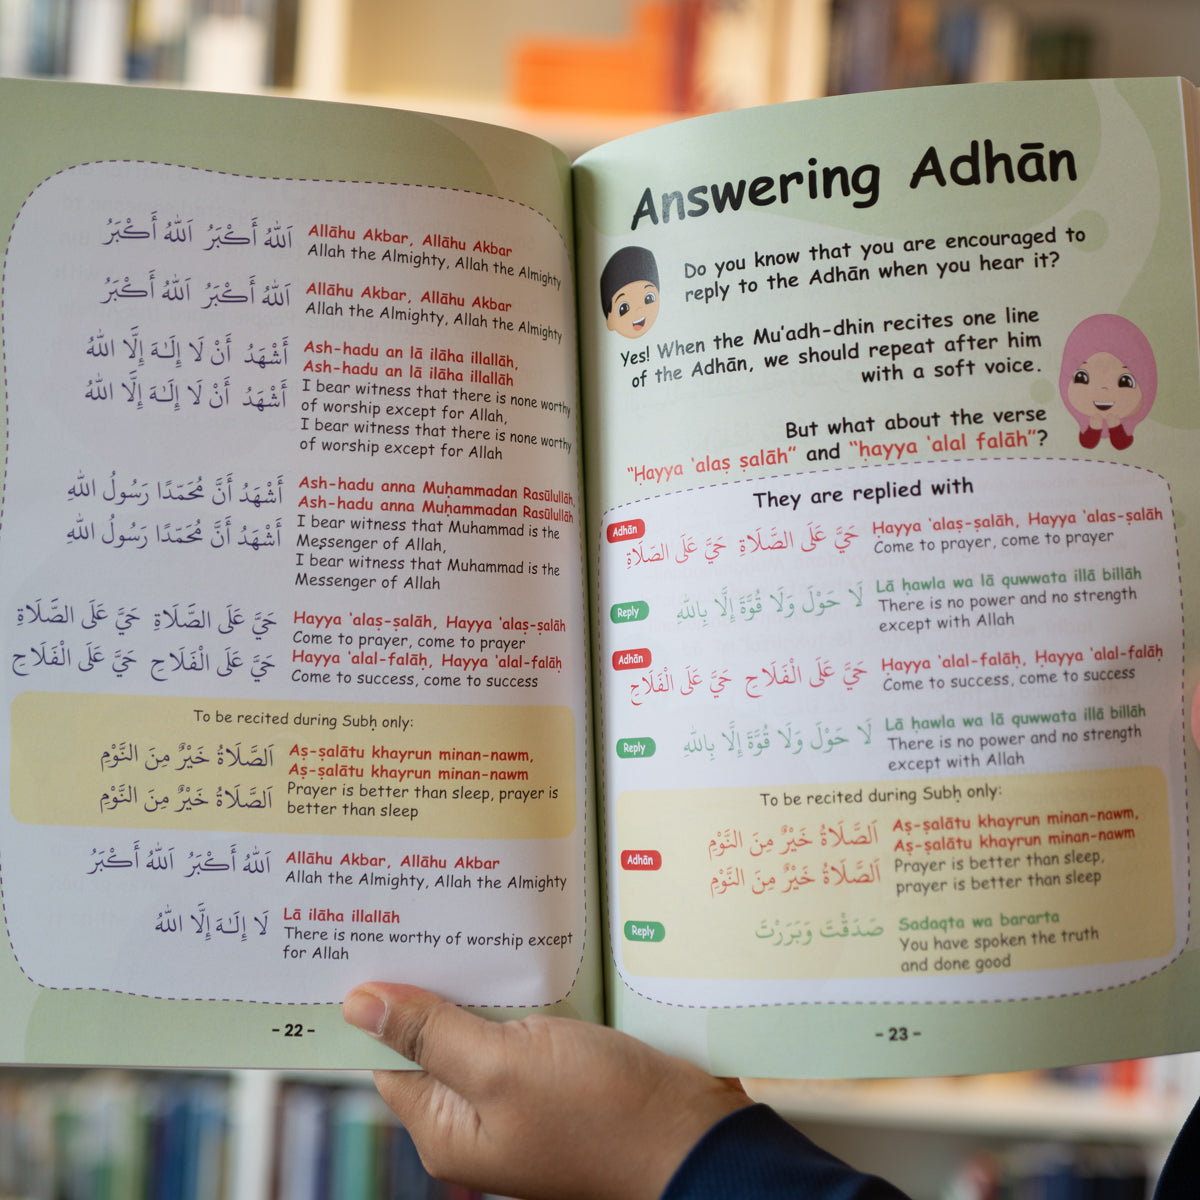 اَللهُ أَكْبَرُ اَللهُ أَكْبَرُ
Allāhu Akbar, Allāhu Akbar
Allah the Almighty, Allah the Almighty
اَللهُ أَكْبَرُ اَللهُ أَكْبَرُ
Allāhu Akbar, Allāhu Akbar
Allah the Almighty, Allah the Almighty
أَشْهَدُ أَنْ لَا إِلَـٰهَ إِلَّا اللهُ
أَشْهَدُ أَنْ لَا إِلَـٰهَ إِلَّا اللهُ
Ash-hadu an lā ilāha illallāh,
Ash-hadu an lā ilāha illallāh
I bear witness that there is none worthy
of worship except for Allah,
I bear witness that there is none worthy
of worship except for Allah
أَشْهَدُ أَنَّ مُحَمَّدًا رَسُولُ اللهِ
أَشْهَدُ أَنَّ مُحَمَّدًا رَسُولُ اللهِ
Ash-hadu anna Muḥammadan Rasūlullāh,
Ash-hadu anna Muḥammadan Rasūlullāh
I bear witness that Muhammad is the
Messenger of Allah,
I bear witness that Muhammad is the
Messenger of Allah
حَيَّ عَلَى الصَّلَاةِ حَيَّ عَلَى الصَّلَاةِ
Hayya 'alaṣ-ṣalāh, Hayya 'alaṣ-ṣalāh
Come to prayer, come to prayer
حَيَّ عَلَى الْفَلَاحِ حَيَّ عَلَى الْفَلَاحِ
Hayya 'alal-falāḥ, Hayya 'alal-falāḥ
Come to success, come to success
To be recited during Subḥ only:
اَلصَّلَاةُ خَيْرٌ مِنَ النَّوْمِ
اَلصَّلَاةُ خَيْرٌ مِنَ النَّوْمِ
Aṣ-ṣalātu khayrun minan-nawm,
Aṣ-ṣalātu khayrun minan-nawm
Prayer is better than sleep, prayer is
better than sleep
اَللهُ أَكْبَرُ اَللهُ أَكْبَرُ
Allāhu Akbar, Allāhu Akbar
Allah the Almighty, Allah the Almighty
لَا إِلَـٰهَ إِلَّا اللهُ
Lā ilāha illallāh
There is none worthy of worship except
for Allah
- 22 -
Answering Adhān
Do you know that you are encouraged to
reply to the Adhān when you hear it?
Yes! When the Mu'adh-dhin recites one line
of the Adhān, we should repeat after him
with a soft voice.
But what about the verse
"Ḥayya 'alaṣ ṣalāh" and "ḥayya 'alal falāḥ"?
They are replied with
Adhān
حَيَّ عَلَى الصَّلَاةِ حَيَّ عَلَى الصَّلَاةِ
Ḥayya 'alaṣ-ṣalāh, Hayya 'alas-ṣalāh
Come to prayer, come to prayer
Reply
لَا حَوْلَ وَلَا قُوَّةَ إِلَّا بِاللهِ
Lā ḥawla wa lā quwwata illā billāh
There is no power and no strength
except with Allah
Adhān
حَيَّ عَلَى الْفَلَاحِ حَيَّ عَلَى الْفَلَاحِ
Ḥayya 'alal-falāḥ, Ḥayya 'alal-falāḥ
Come to success, come to success
Reply
لَا حَوْلَ وَلَا قُوَّةَ إِلَّا بِاللهِ
Lā ḥawla wa lā quwwata illā billāh
There is no power and no strength
except with Allah
To be recited during Subḥ only:
Adhān
اَلصَّلَاةُ خَيْرٌ مِنَ النَّوْمِ
اَلصَّلَاةُ خَيْرٌ مِنَ النَّوْمِ
Aṣ-ṣalātu khayrun minan-nawm,
Aṣ-ṣalātu khayrun minan-nawm
Prayer is better than sleep,
prayer is better than sleep
Reply
صَدَقْتَ وَبَرَرْتَ
Sadaqta wa bararta
You have spoken the truth
and done good
- 23 -